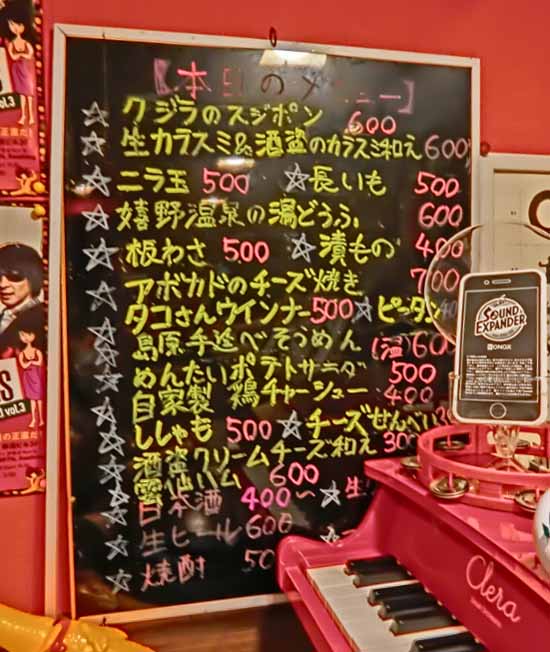 【本日のメニュー】
☆ クジラのスジポン 600
☆ 生カラスミ&酒盗のカラスミ和え 600
☆ ニラ玉 500 ☆長いも 500
☆ 嬉野温泉の湯どうふ 600
☆ 板わさ 500 ☆漬もの 400
☆ アボカドのチーズ焼き 700
☆ タコさんウインナー500 ☆ピータン
☆ 島原手延べそうめん (温)600
☆ めんたいポテトサラダ 500
☆ 自家製 鶏チャーシュー 400
☆ ししゃも 500 ☆チーズせんべい
☆ 酒盗クリームチーズ和え 300
☆ 雲仙ハム 600
☆ 日本酒 400〜 ☆生
☆ 生ビール 600
☆ 焼酎
SOUND EXPANDER
ONGX
Clera
vol.3
vol.3